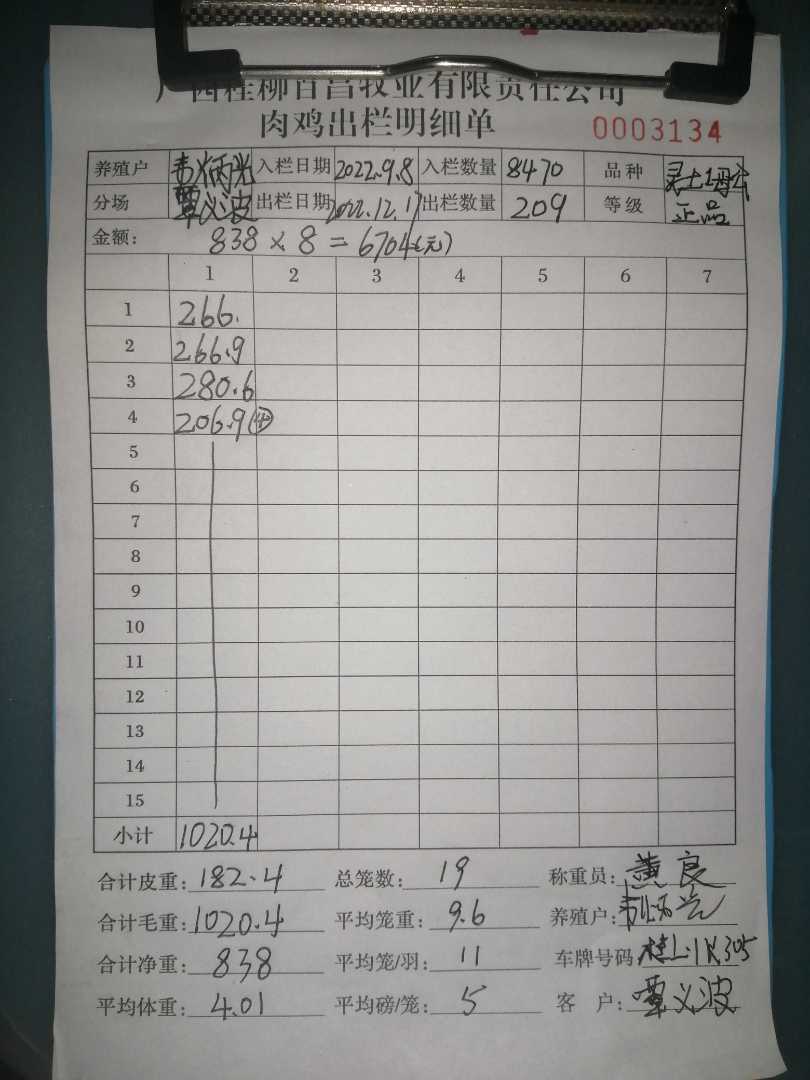 广西桂柳百昌牧业有限责任公司
肉鸡出栏明细单 0003134
养殖户 韦炳光 入栏日期 2022.9.8 入栏数量 8470 品种
分场 覃义波 出栏日期 2022.12.17 出栏数量 209 等级 正品
金额: 838 × 8 = 6704(元)
1 2 3 4 5 6 7
1 266.
2 266.9
3 280.6
4 206.9 (4)
5
6
7
8
9
10
11
12
13
14
15
小计 1020.4
合计皮重: 182.4 总笼数: 19 称重员: 黄良
合计毛重: 1020.4 平均笼重: 9.6 养殖户: 韦炳光
合计净重: 838 平均笼/羽: 11 车牌号码
平均体重: 4.01 平均磅/笼: 5 客户: 覃义波